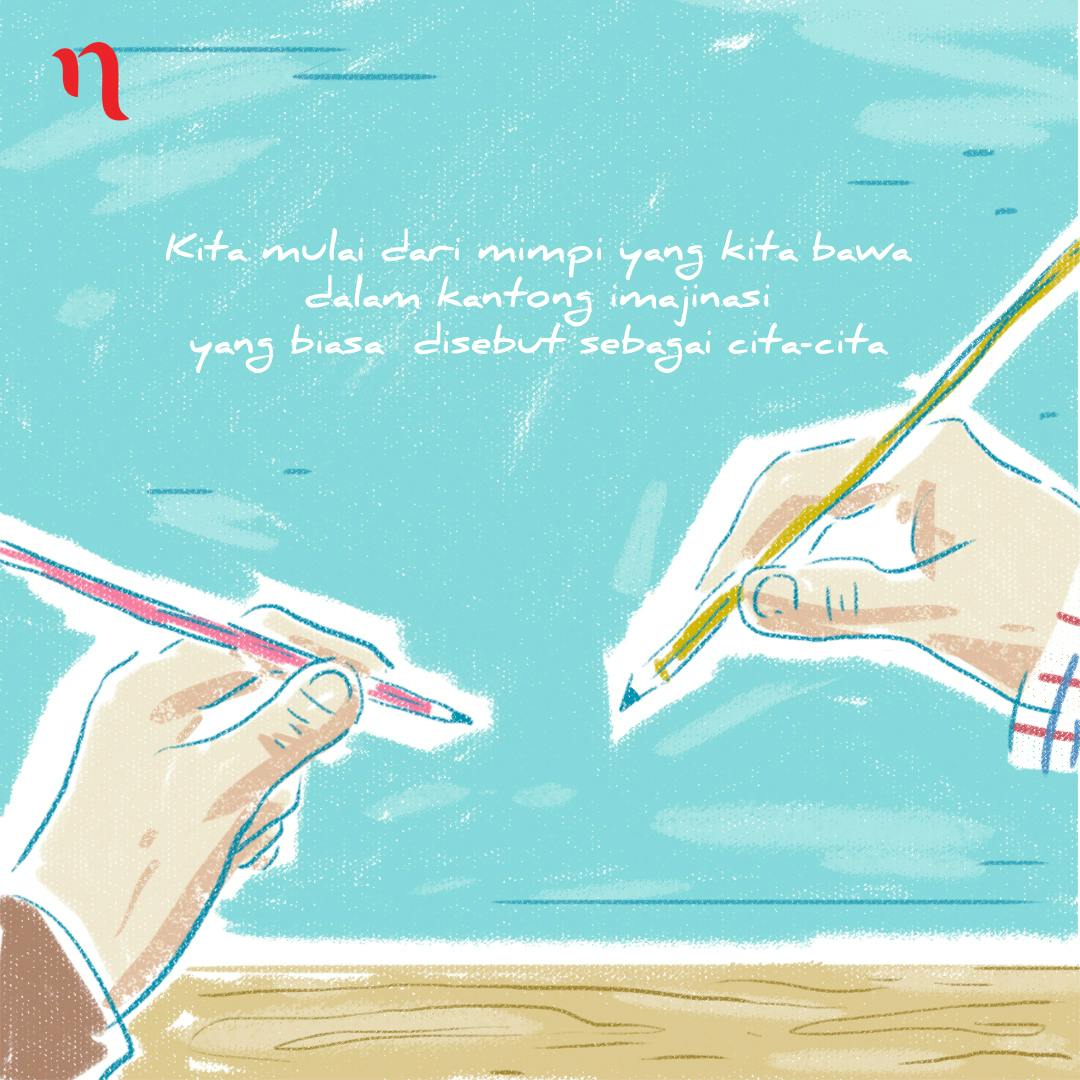 η
Kita mulai dari mimpi yang kita bawa
dalam kantong imajinasi
yang biasa disebut sebagai cita-cita